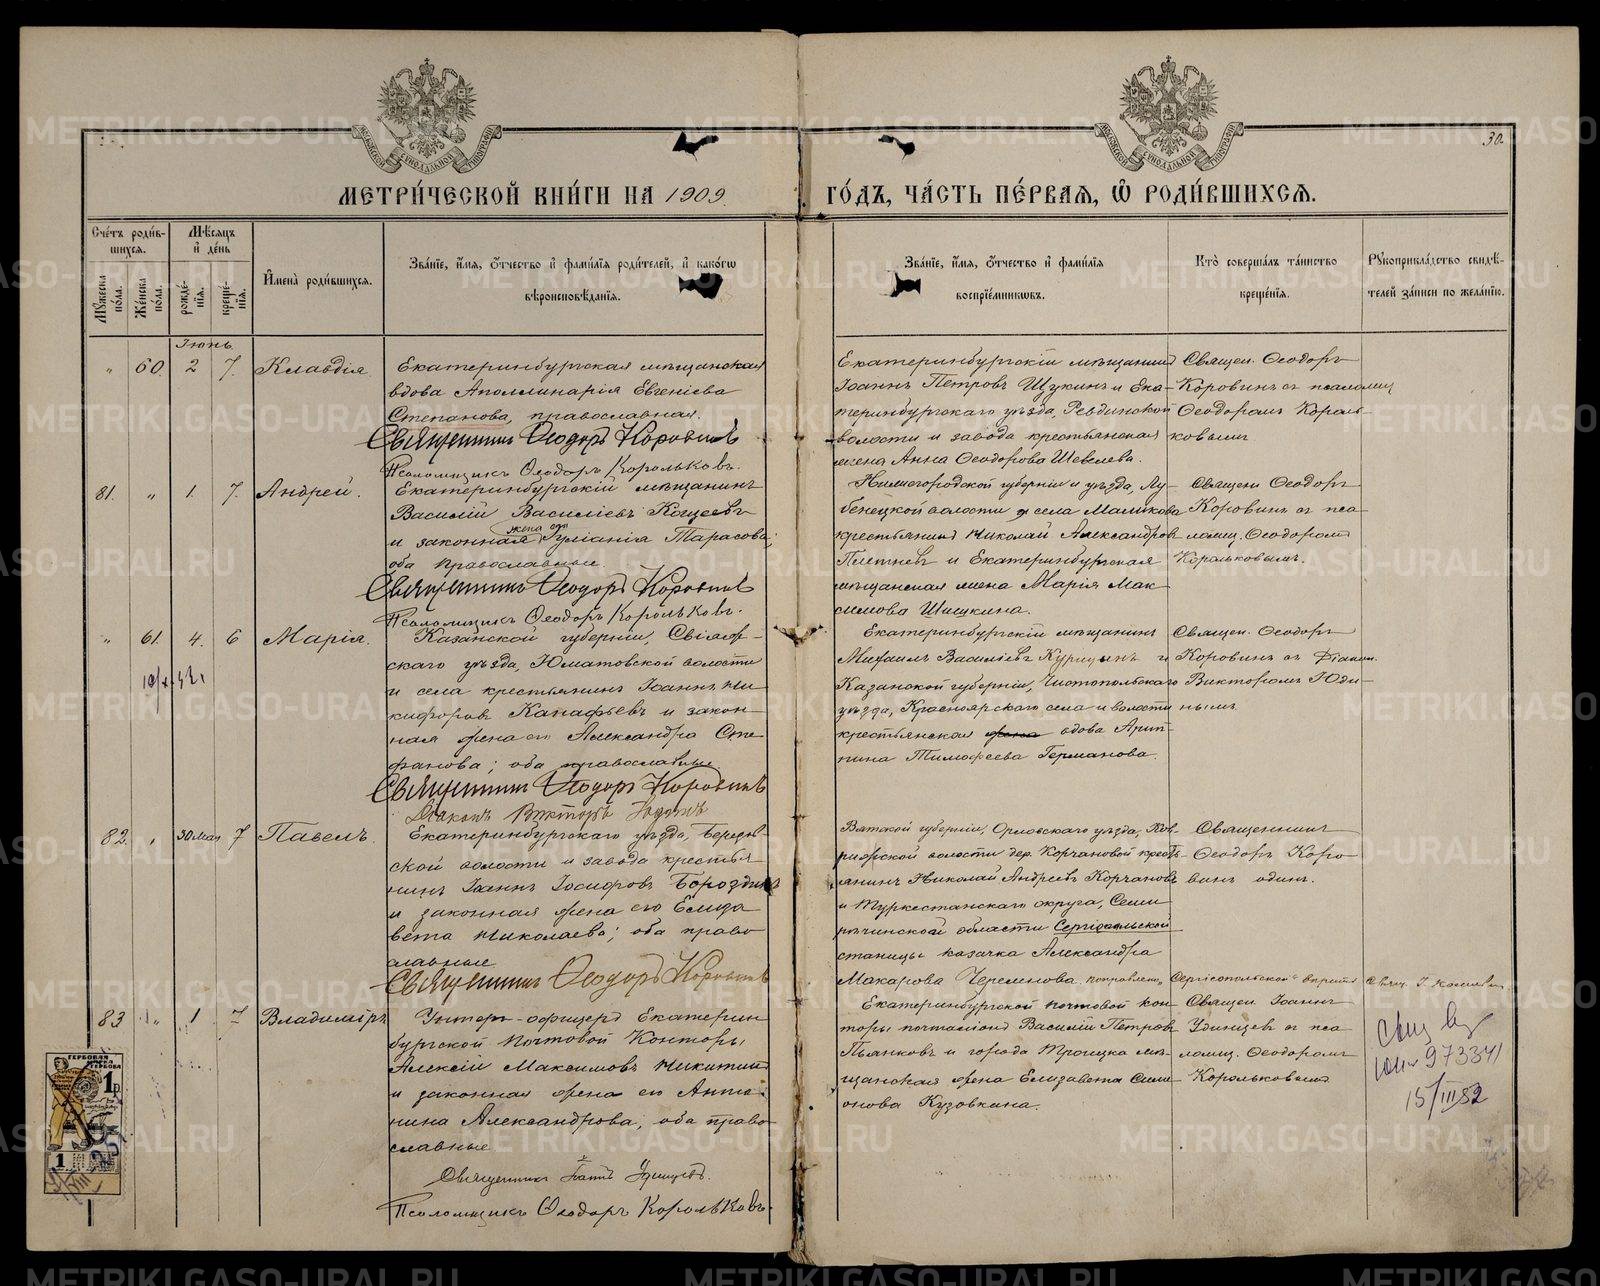 30.
МЕТРИ́ЧЕСКОЙ КНИ́ГИ НА 1909 ГО́ДЪ, ЧА́СТЬ ПЕ́РВАЯ, Ѿ РОДИ́ВШИХСѦ.
Сче́тъ роди́в-
шихсѧ.
Мꙋжеска по́ла.
Же́нска по́ла.
Мѣ́сѧцъ
и҆ де́нь
рожде́-
нїѧ.
креще́-
нїѧ.
И҆мена̀ роди́вшихсѧ.
Зва́нїе, и҆́мѧ, ѻ҆́тчество и҆ фами́лїѧ роди́телей, и҆ како́гѡ
вѣроисповѣ́данїѧ.
Зва́нїе, и҆́мѧ, ѻ҆́тчество и҆ фами́лїѧ
воспрїе́мникѡвъ.
Кто̀ соверша́лъ та́инство
креще́нїѧ.
Рꙋкоприкла́дство свидѣ́-
телей за́писи по жела́нїю.
Іюнь.
" 60. 2 7. Клавдія.
Екатеринбургская мѣщанская
вдова Аполлинарія Евгеніева
Степанова, православная.
Священникъ Ѳеодоръ Коровинъ
Псаломщикъ Ѳеодоръ Корольковъ.
Екатеринбургскій мѣщанинъ
Іоаннъ Петровъ Щукинъ и Ека-
теринбургскаго уѣзда, Ревдинской
волости и завода крестьянская
жена Анна Ѳеодорова Шевелева.
Священ. Ѳеодоръ
Коровинъ съ псаломщ
Ѳеодоромъ Король-
ковымъ
81. " 1. 7. Андрей.
Екатеринбургскій мѣщанинъ
Василій Василіевъ Кощеевъ
жена его
и законная Іуліанія Тарасова;
оба православные.
Священникъ Ѳеодоръ Коровинъ
Псаломщикъ Ѳеодоръ Корольковъ.
Нижегородской губерніи и уѣзда, Лу-
бенецкой волости села Маликова
крестьянинъ Николай Александров
Плетнев и Екатеринбургская
мѣщанская жена Марія Мак-
симова Шишкина.
Священ Ѳеодоръ
Коровинъ съ пса-
ломщ. Ѳеодоромъ
Корольковымъ.
" 61. 4. 6 Марія.
Казанской губерніи, Свіяж-
скаго уѣзда, Юматовской волости
и села крестьянинъ Іоаннъ Ни-
кифоровъ Канафьевъ и закон-
ная жена его Александра Сте-
фанова; оба православные.
Священникъ Ѳеодоръ Коровинъ
Діаконъ Викторъ Юдинъ
Екатеринбургскій мѣщанинъ
Михаилъ Василіевъ Курицынъ и
Казанской губерніи, Чистопольскаго
уѣзда, Красноярскаго села и волости
крестьянская жена вдова Агрип-
пина Тимофеева Германова.
Священ. Ѳеодоръ
Коровинъ съ Діакон.
Викторомъ Юди-
нымъ
82. " 30 мая 7 Павелъ.
Екатеринбургскаго уѣзда,
ской волости и завода крестья-
нинъ Іоаннъ Іосифовъ Бороздинъ
и законная жена его Елиза-
вета Николаева; оба право-
славные
Священникъ Ѳеодоръ Коровинъ
Вятской губерніи, Орловскаго уѣзда,
волости дер. Корчановой кресть-
янинъ Николай Андреевъ Корчановъ
и Туркестанскаго округа, Семи-
рѣчинской области Сергіопольской
станицы казачка Александра
Макарова Черемнова поправлен. "Сергіопольской" вѣрить Свящ. І.
Священникъ
Ѳеодоръ Коро-
винъ одинъ.
83 " 1 7 Владиміръ
Унтеръ-офицеръ Екатерин-
бургской Почтовой Конторы
Алексій Максимовъ Никитинъ
и законная жена его Анто-
нина Александрова; оба право-
славные
Священникъ Іоаннъ Удинцевъ.
Псаломщикъ Ѳеодоръ Корольковъ.
Екатеринбургской почтовой кон-
торы почталіонъ Василій Петровъ
Пьянковъ и города Троицка мѣ-
щанская жена Елизавета Симе-
онова Кузовкина.
Священ. Іоаннъ
Удинцев съ пса-
ломщ. Ѳеодоромъ
Корольковымъ
973341
15/III 52
ГЕРБОВАЯ
1 р